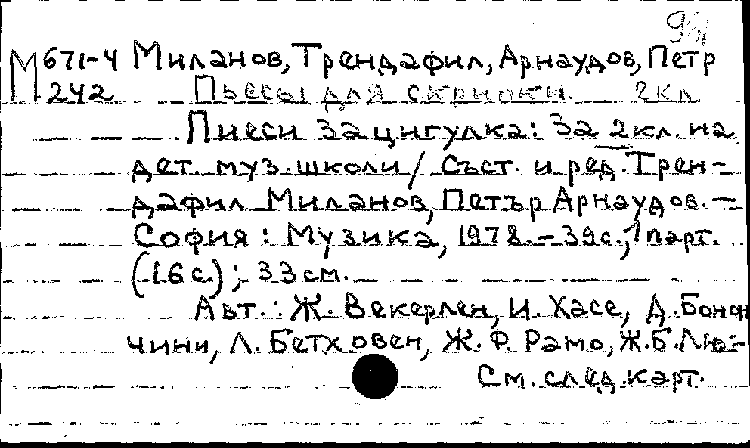 М 671-4 Миланов, Трендафил, Арнаудов, Петр
242 Пьесы для скрипки 2кл
Пиеси за цигулка: За 2кл. на
дет. муз. школи / Съст. и ред. Трен-
дафил Миланов, Петър Арнаудов. —
София: Музика, 1978. — 39с., 1 парт.
(16с.); 33см.
Авт.: Ж. Векерлен, И. Хасе, Д. Бонон
чини, Л. Бетховен, Ж. Ф. Рамо, Ж. Б. Лю-
См. след. карт.